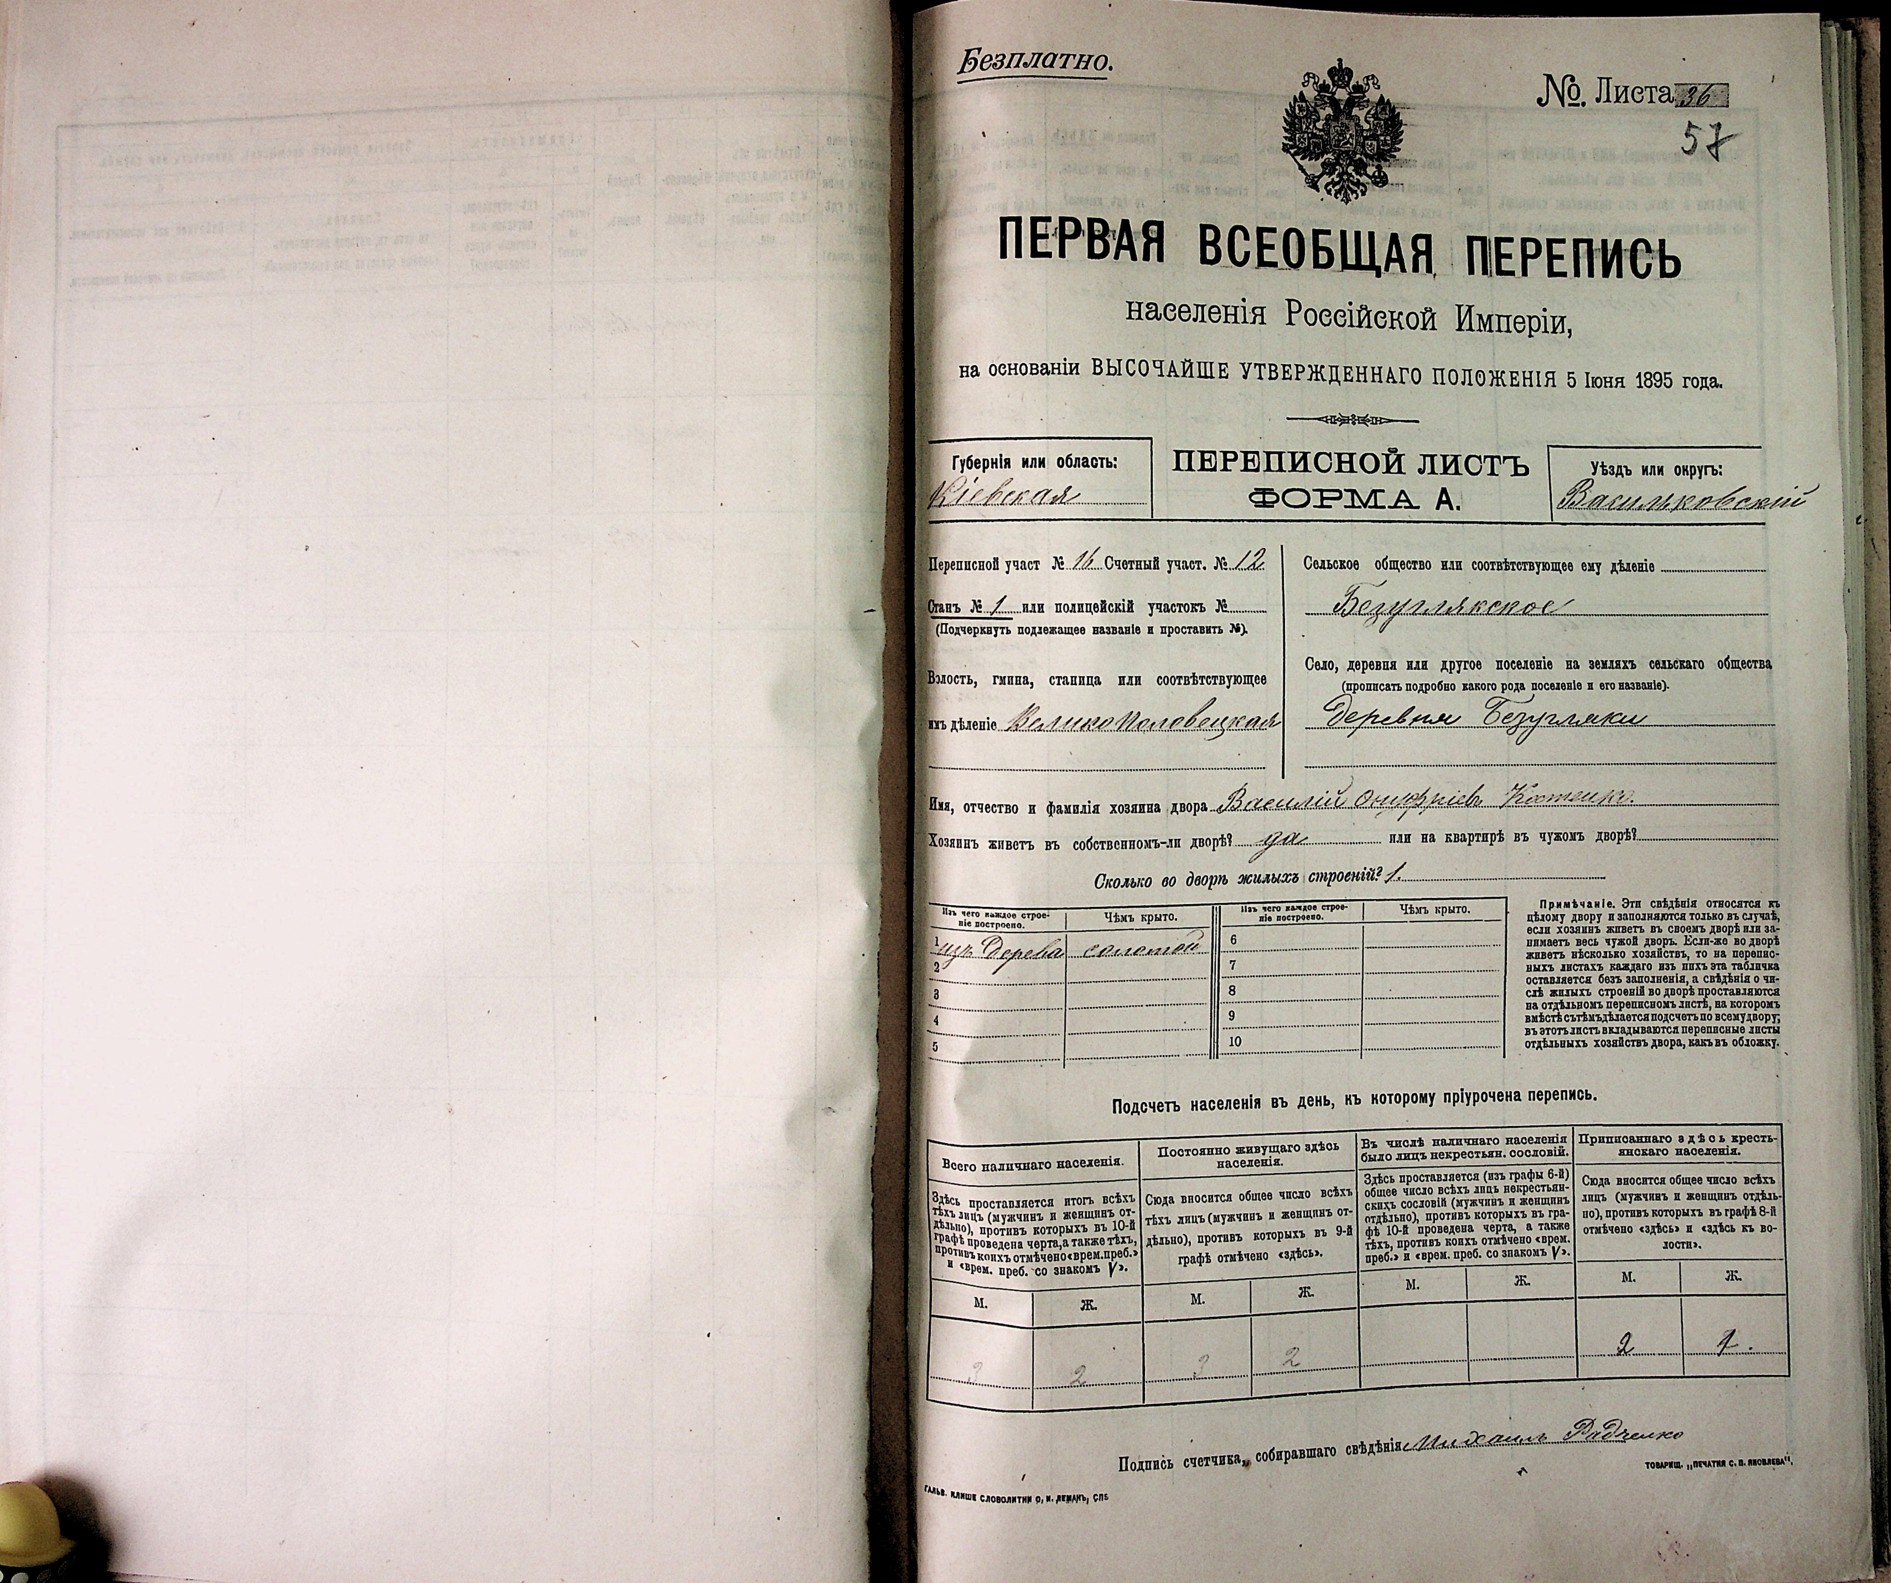 Безплатно.
№ Листа 36
57
ПЕРВАЯ ВСЕОБЩАЯ ПЕРЕПИСЬ
населенія Россійской Имперіи,
на основаніи ВЫСОЧАЙШЕ УТВЕРЖДЕННАГО ПОЛОЖЕНІЯ 5 Іюня 1895 года.
Губернія или область:
Кіевская
ПЕРЕПИСНОЙ ЛИСТЪ
ФОРМА А.
Уѣздъ или округъ:
Васильковскій
Переписной участ № 16 Счетный участ. № 12
Станъ № 1 или полицейскій участокъ №
(Подчеркнуть подлежащее названіе и проставить №).
Волость, гмина, станица или соотвѣтствующее
имъ дѣленіе Великополовецкая
Сельское общество или соотвѣтствующее ему дѣленіе
Безуглякское
Село, деревня или другое поселеніе на земляхъ сельскаго общества
(прописать подробно какого рода поселеніе и его названіе).
Деревня Безугляки
Имя, отчество и фамилія хозяина двора Василій Онуфріевъ Костенко.
Хозяинъ живетъ въ собственномъ-ли дворѣ? да или на квартирѣ въ чужомъ дворѣ?
Сколько во дворѣ жилыхъ строеній? 1.
Изъ чего каждое строе-
ніе построено.
Чѣмъ крыто.
Изъ чего каждое строе-
ніе построено.
Чѣмъ крыто.
1 изъ дерева соломой
2
3
4
5
6
7
8
9
10
Примѣчаніе. Эти свѣдѣнія относятся къ
цѣлому двору и заполняются только въ случаѣ,
если хозяинъ живетъ въ своемъ дворѣ или за-
нимаетъ весь чужой дворъ. Если-же во дворѣ
живетъ нѣсколько хозяйствъ, то на перепис-
ныхъ листахъ каждаго изъ нихъ эта табличка
оставляется безъ заполненія, а свѣдѣнія о чи-
слѣ жилыхъ строеній во дворѣ проставляются
на отдѣльномъ переписномъ листѣ, на которомъ
вмѣстѣ съ тѣмъ дѣлается подсчетъ по всему двору;
въ этотъ листъ вкладываются переписные листы
отдѣльныхъ хозяйствъ двора, какъ въ обложку.
Подсчетъ населенія въ день, къ которому пріурочена перепись.
Всего наличнаго населенія.
Здѣсь проставляется итогъ всѣхъ
тѣхъ лицъ (мужчинъ и женщинъ от-
дѣльно), противъ которыхъ въ 10-й
графѣ проведена черта, а также тѣхъ,
противъ коихъ отмѣчено «врем. преб.»
и «врем. преб. со знакомъ V».
Постоянно живущаго здѣсь
населенія.
Сюда вносится общее число всѣхъ
тѣхъ лицъ (мужчинъ и женщинъ от-
дѣльно), противъ которыхъ въ 9-й
графѣ отмѣчено «здѣсь».
Въ числѣ наличнаго населенія
было лицъ некрестьян. сословій.
Здѣсь проставляется (изъ графы 6-й)
общее число всѣхъ лицъ некрестьян-
скихъ сословій (мужчинъ и женщинъ
отдѣльно), противъ которыхъ въ гра-
фѣ 10-й проведена черта, а также
тѣхъ, противъ коихъ отмѣчено «врем.
преб.» и «врем. преб. со знакомъ V».
Приписаннаго здѣсь кресть-
янскаго населенія.
Сюда вносится общее число всѣхъ
лицъ (мужчинъ и женщинъ отдѣль-
но), противъ которыхъ въ графѣ 8-й
отмѣчено «здѣсь» и «здѣсь къ во-
лости».
М. Ж. М. Ж. М. Ж. М. Ж.
3 2 3 2 2 1.
Подпись счетчика, собиравшаго свѣдѣнія Михаилъ Радченко
ГАЛЬВ. КЛИШЕ СЛОВОЛИТНИ О. И. ЛЕМАНЪ, СПБ
ТОВАРИЩ. „ПЕЧАТНЯ С. П. ЯКОВЛЕВА".